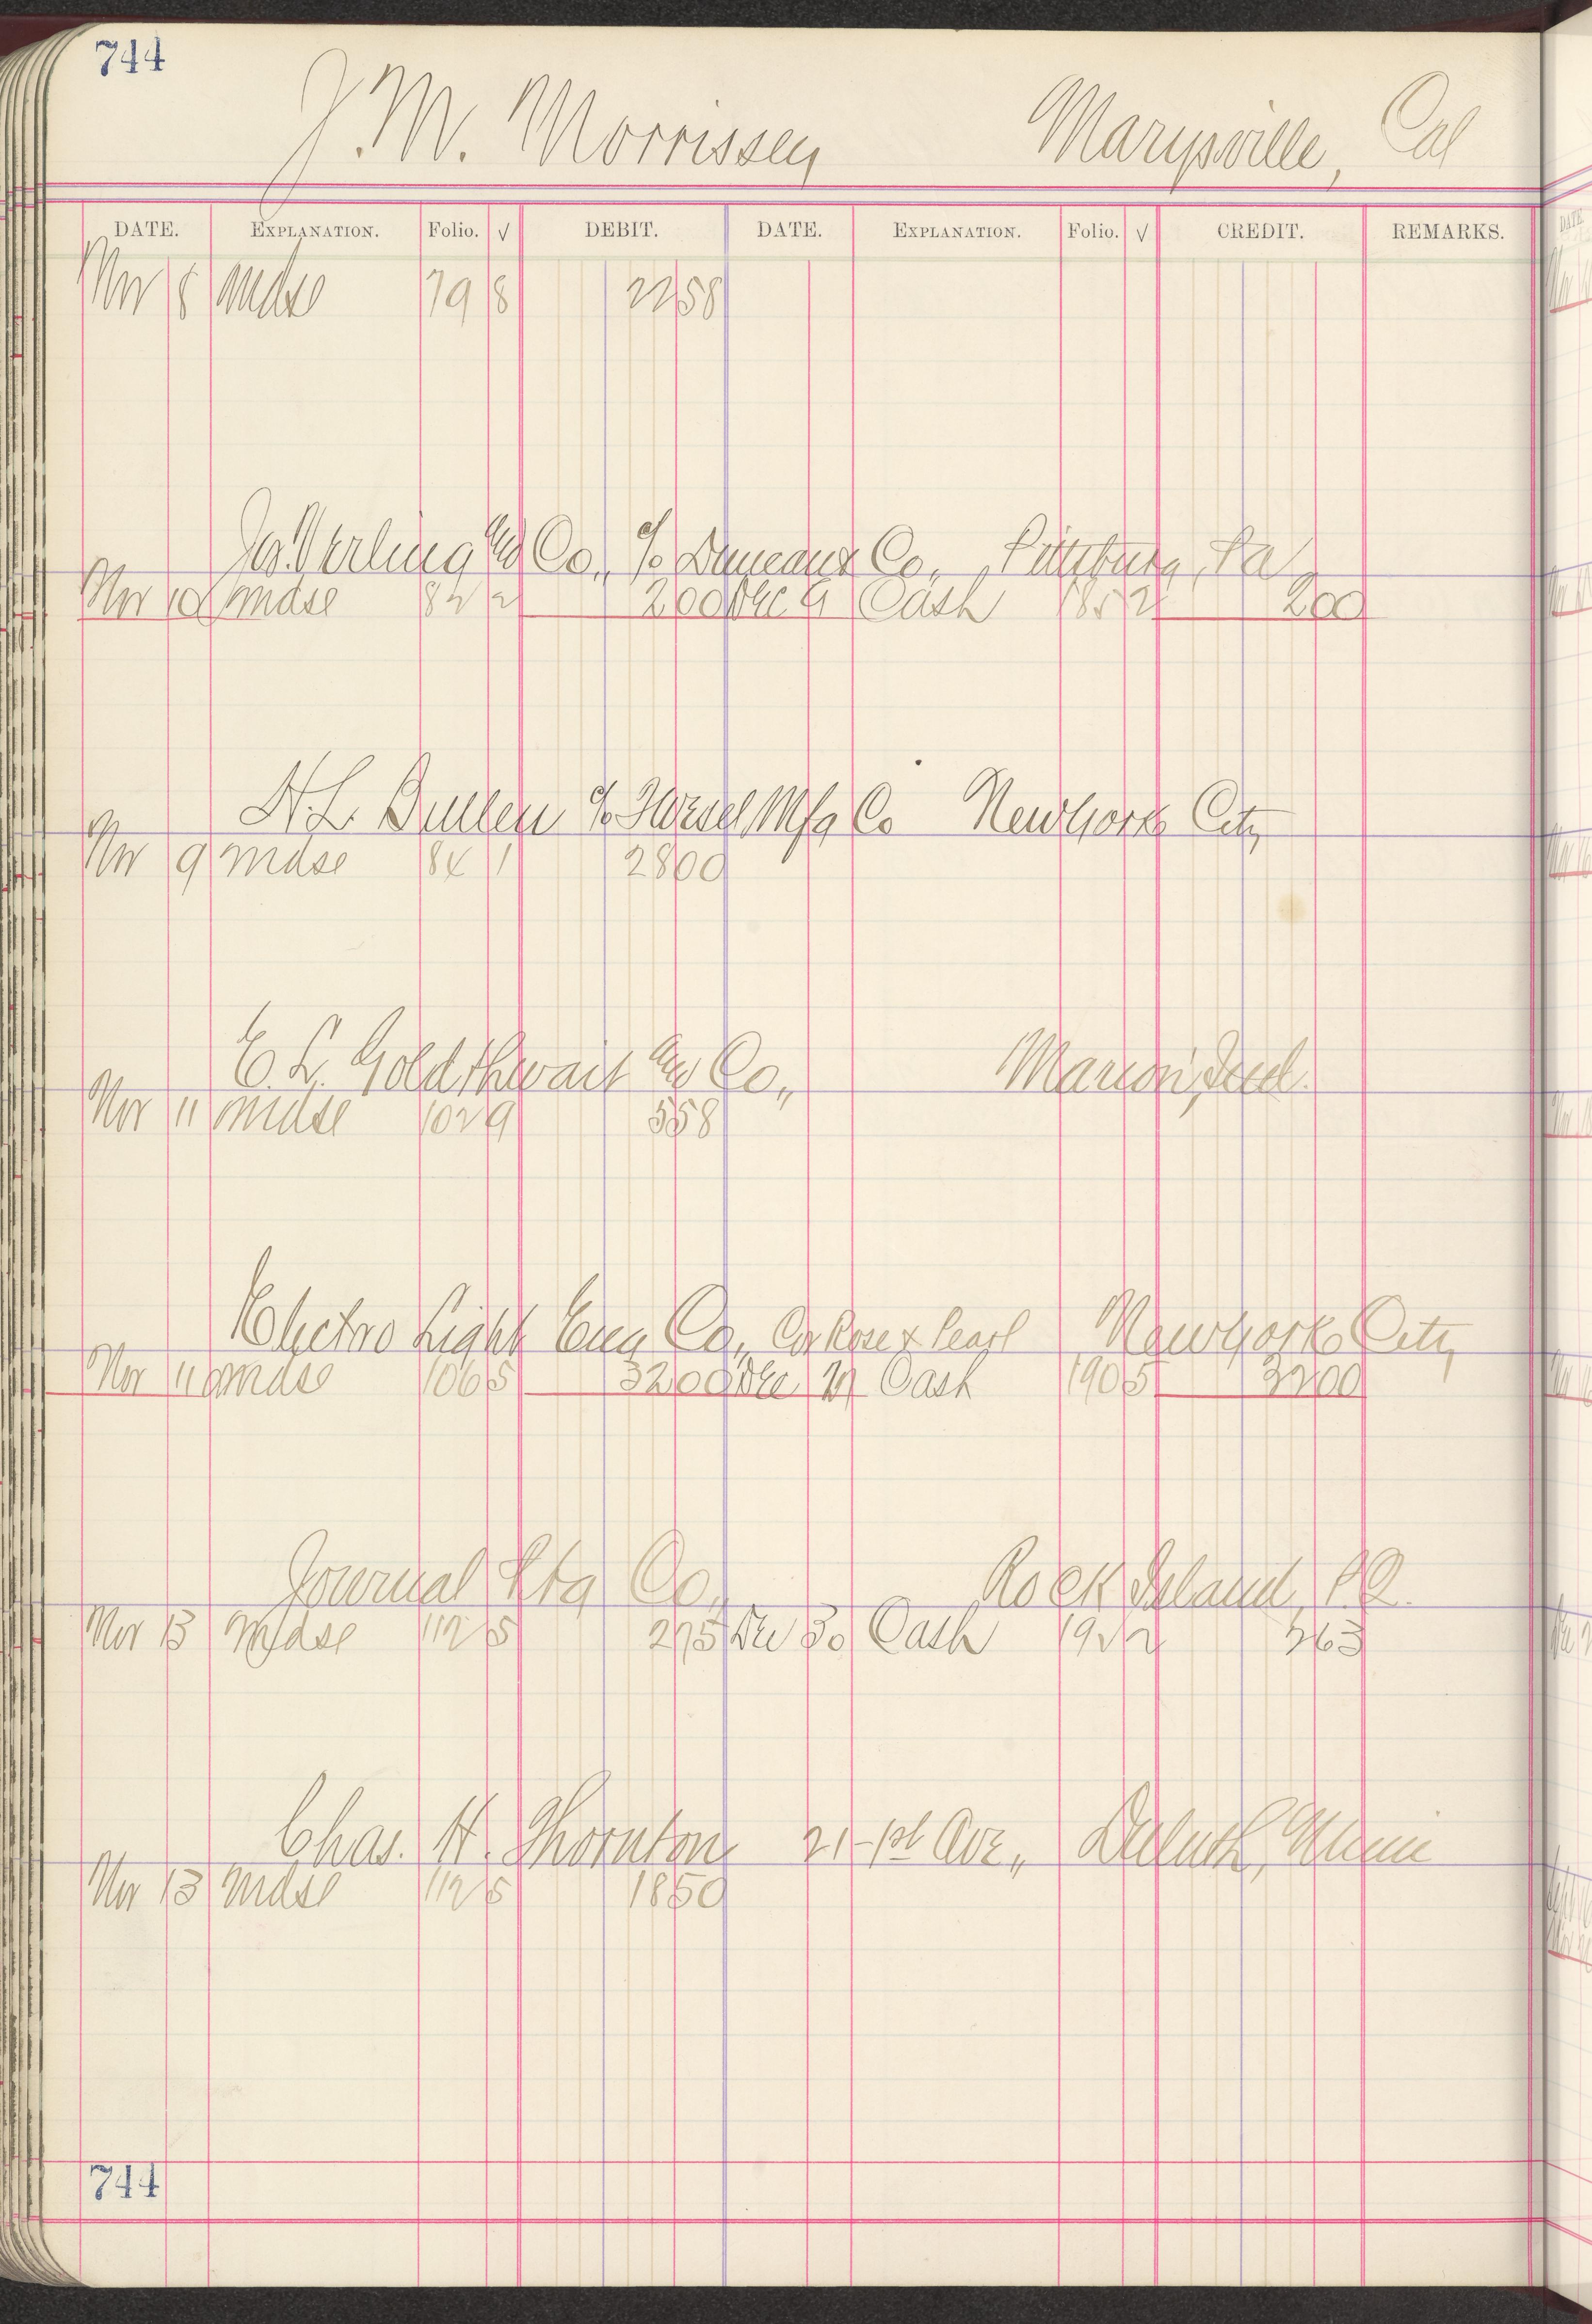 744
J. M. Morrissey Marysville, Cal
DATE. EXPLANATION. Folio. √ DEBIT. DATE. EXPLANATION. Folio. √ CREDIT. REMARKS.
Nov 8 Mdse 79 8 2258
Co., c/o Co., Pittsburg, Pa
Nov 10 Mdse 82 2 200 Dec 9 Cash 185 2 200
H. L. Bullen c/o Wesel Mfg Co New York City
Nov 9 Mdse 84 1 2800
E. L. Goldthwait & Co., Marion, Ind.
Nov 11 Mdse 102 9 558
Electro Light Eng Co., Cor Rose & Pearl New York City
Nov 11 Mdse 106 5 3200 Dec Cash 190 5 3200
Journal Ptg Co., Rock Island, P.Q.
Nov 13 Mdse 112 5 275 Dec 30 Cash 192 2 263
Chas. H. Thornton 21-1st Ave., Duluth, Minn
Nov 13 Mdse 112 5 1850
744